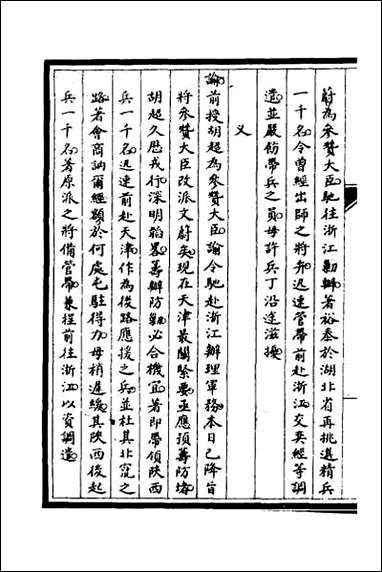 蔚為參贊大臣馳往浙江勦辦著裕泰於湖北省再挑選精兵
一千名令曾經出師之將弁迅速管帶前赴浙江交奕經等調
遣並嚴飭帶兵之員毋許兵丁沿途滋擾
又
諭前授胡超為參贊大臣諭令馳赴浙江辦理軍務本日已降旨
將參贊大臣改派文蔚矣現在天津最關緊要亟應預籌防堵
胡超久歷戎行深明韜略籌辦防勦必合機宜著即帶領陝西
兵一千名迅速前赴天津作為後路應援之兵並杜其北竄之
路著會商訥爾經額於何處屯駐得力毋稍遲緩其陝西後起
兵一千名著原派之將備管帶兼程前往浙江以資調遣